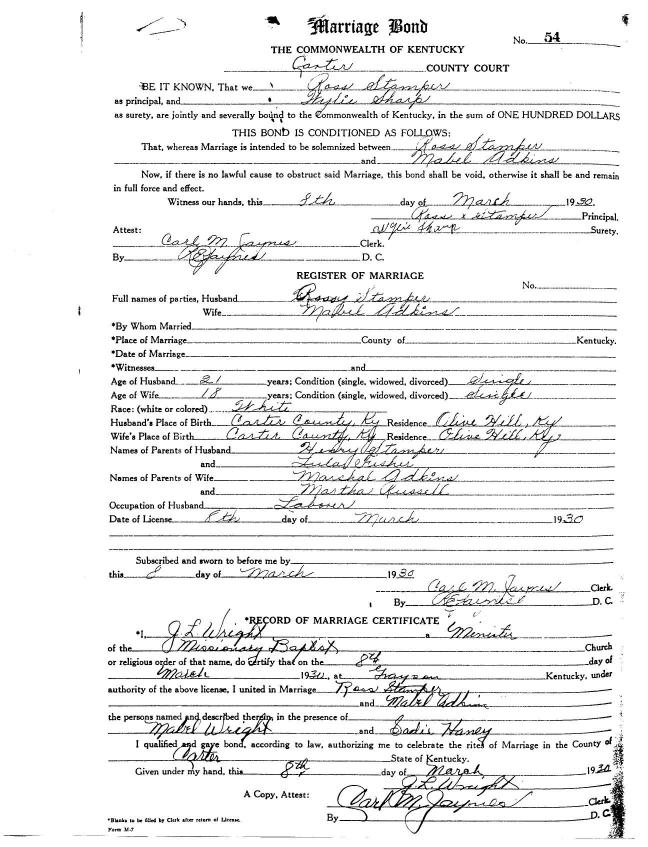 Marriage Bond
No. 54
THE COMMONWEALTH OF KENTUCKY
Carter COUNTY COURT
BE IT KNOWN, That we Ross Stamper
as principal, and Wylie Sharp
as surety, are jointly and severally bound to the Commonwealth of Kentucky, in the sum of ONE HUNDRED DOLLARS
THIS BOND IS CONDITIONED AS FOLLOWS:
That, whereas Marriage is intended to be solemnized between Ross Stamper
and Mabel Adkins
Now, if there is no lawful cause to obstruct said Marriage, this bond shall be void, otherwise it shall be and remain
in full force and effect.
Witness our hands, this 8th day of March 1930.
Ross x Stamper Principal.
Attest: Sharp Surety.
Carl M. Jaynes Clerk.
By D. C.
REGISTER OF MARRIAGE
No.
Full names of parties, Husband Stamper
Wife Mabel Adkins
*By Whom Married
*Place of Marriage County of Kentucky.
*Date of Marriage
*Witnesses and
Age of Husband 21 years; Condition (single, widowed, divorced) Single
Age of Wife 18 years; Condition (single, widowed, divorced) Single
Race: (white or colored) White
Husband's Place of Birth Carter County, Ky Residence Olive Hill, Ky
Wife's Place of Birth Carter County, Ky Residence Olive Hill, Ky
Names of Parents of Husband Henry Stamper
and Lula Fisher
Names of Parents of Wife Marshal Adkins
and Martha Russell
Occupation of Husband Laborer
Date of License 8th day of March 1930
Subscribed and sworn to before me by
this 8 day of March 1930
Carl M. Jaynes Clerk.
By D. C.
*RECORD OF MARRIAGE CERTIFICATE
*I, J L Wright a Minister
of the Missionary Baptist Church
or religious order of that name, do certify that on the 8th day of
March 1930, at Grayson Kentucky, under
authority of the above license, I united in Marriage Ross Stamper
and Mabel Adkins
the persons named and described therein, in the presence of
Mabel Wright and Sadie Haney
I qualified and gave bond, according to law, authorizing me to celebrate the rites of Marriage in the County of
Carter State of Kentucky.
Given under my hand, this 8th day of March 1930
J L Wright
A Copy, Attest: Carl M. Jaynes Clerk
By D. C.
*Blanks to be filled by Clerk after return of License.
Form M-7